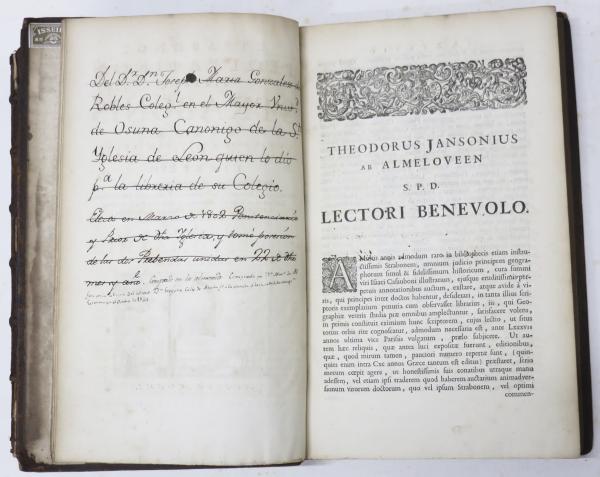 Del S.r D.n Josep Maria Gonzalez de
Robles Coleg.l en el Mayor Univ.d
de Osuna Canonigo de la S.ta
Yglesia de Leon quien lo dio
p.a la libreria de su Colegio.
Electo en Marzo de 1802 Penitenciario
y Prior de dha Yglesia, y tomó posesion
de las dos Prebendas unidas en 22 de dho
mes y año.
THEODORUS JANSONIUS
AB ALMELOVEEN
S. P. D.
LECTORI BENEVOLO.
Ante annis admodum raro in bibliothecis etiam instructissimis
Strabonem, omnium judicio principem geographorum
simul & fidelissimum historicum, cura summi
viri Isaaci Casauboni illustratum, ejusque
perpetuis annotationibus auctum, exstare, atque avide à viris,
qui principes inter doctos habentur, desiderari, in tanta illius scriptoris
exemplarium penuria cum observasset librarius, iis, qui Geographiæ
veteris studia præ omnibus amplectuntur, satisfacere volens,
in primis constituit eximium hunc scriptorem, cujus lectio, ut situs
totius orbis rite cognoscatur, admodum necessaria est, ante LXXXVII
annos ultima vice Parisiis vulgatum, prælo subjicere. Ut autem
hæc reliquis, quæ antea luci expositæ fuerunt, editionibus,
quæ, quod mirum tamen, pauciori numero repertæ sunt, (quinquies
enim intra CXC annos Græce tantum est editus) præstaret, serio
mecum cœpit agere, ut honestissimis suis conatibus utraque manu
adessem, vel etiam ipsi traderem quod haberem auctarium animadversionum
virorum doctorum, quo vel ipsum Strabonem, vel optimi
commen-